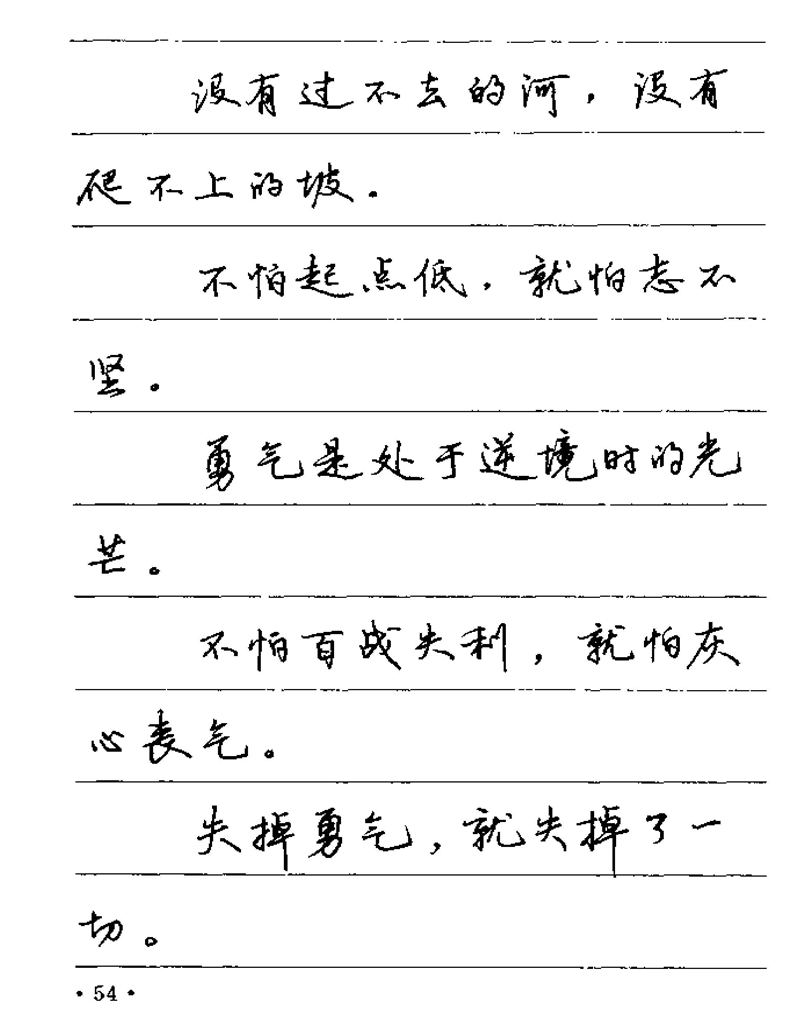 没有过不去的河，没有
爬不上的坡。
不怕起点低，就怕志不
坚。
勇气是处于逆境时的光
芒。
不怕百战失利，就怕灰
心丧气。
失掉勇气，就失掉了一
切。
·54·